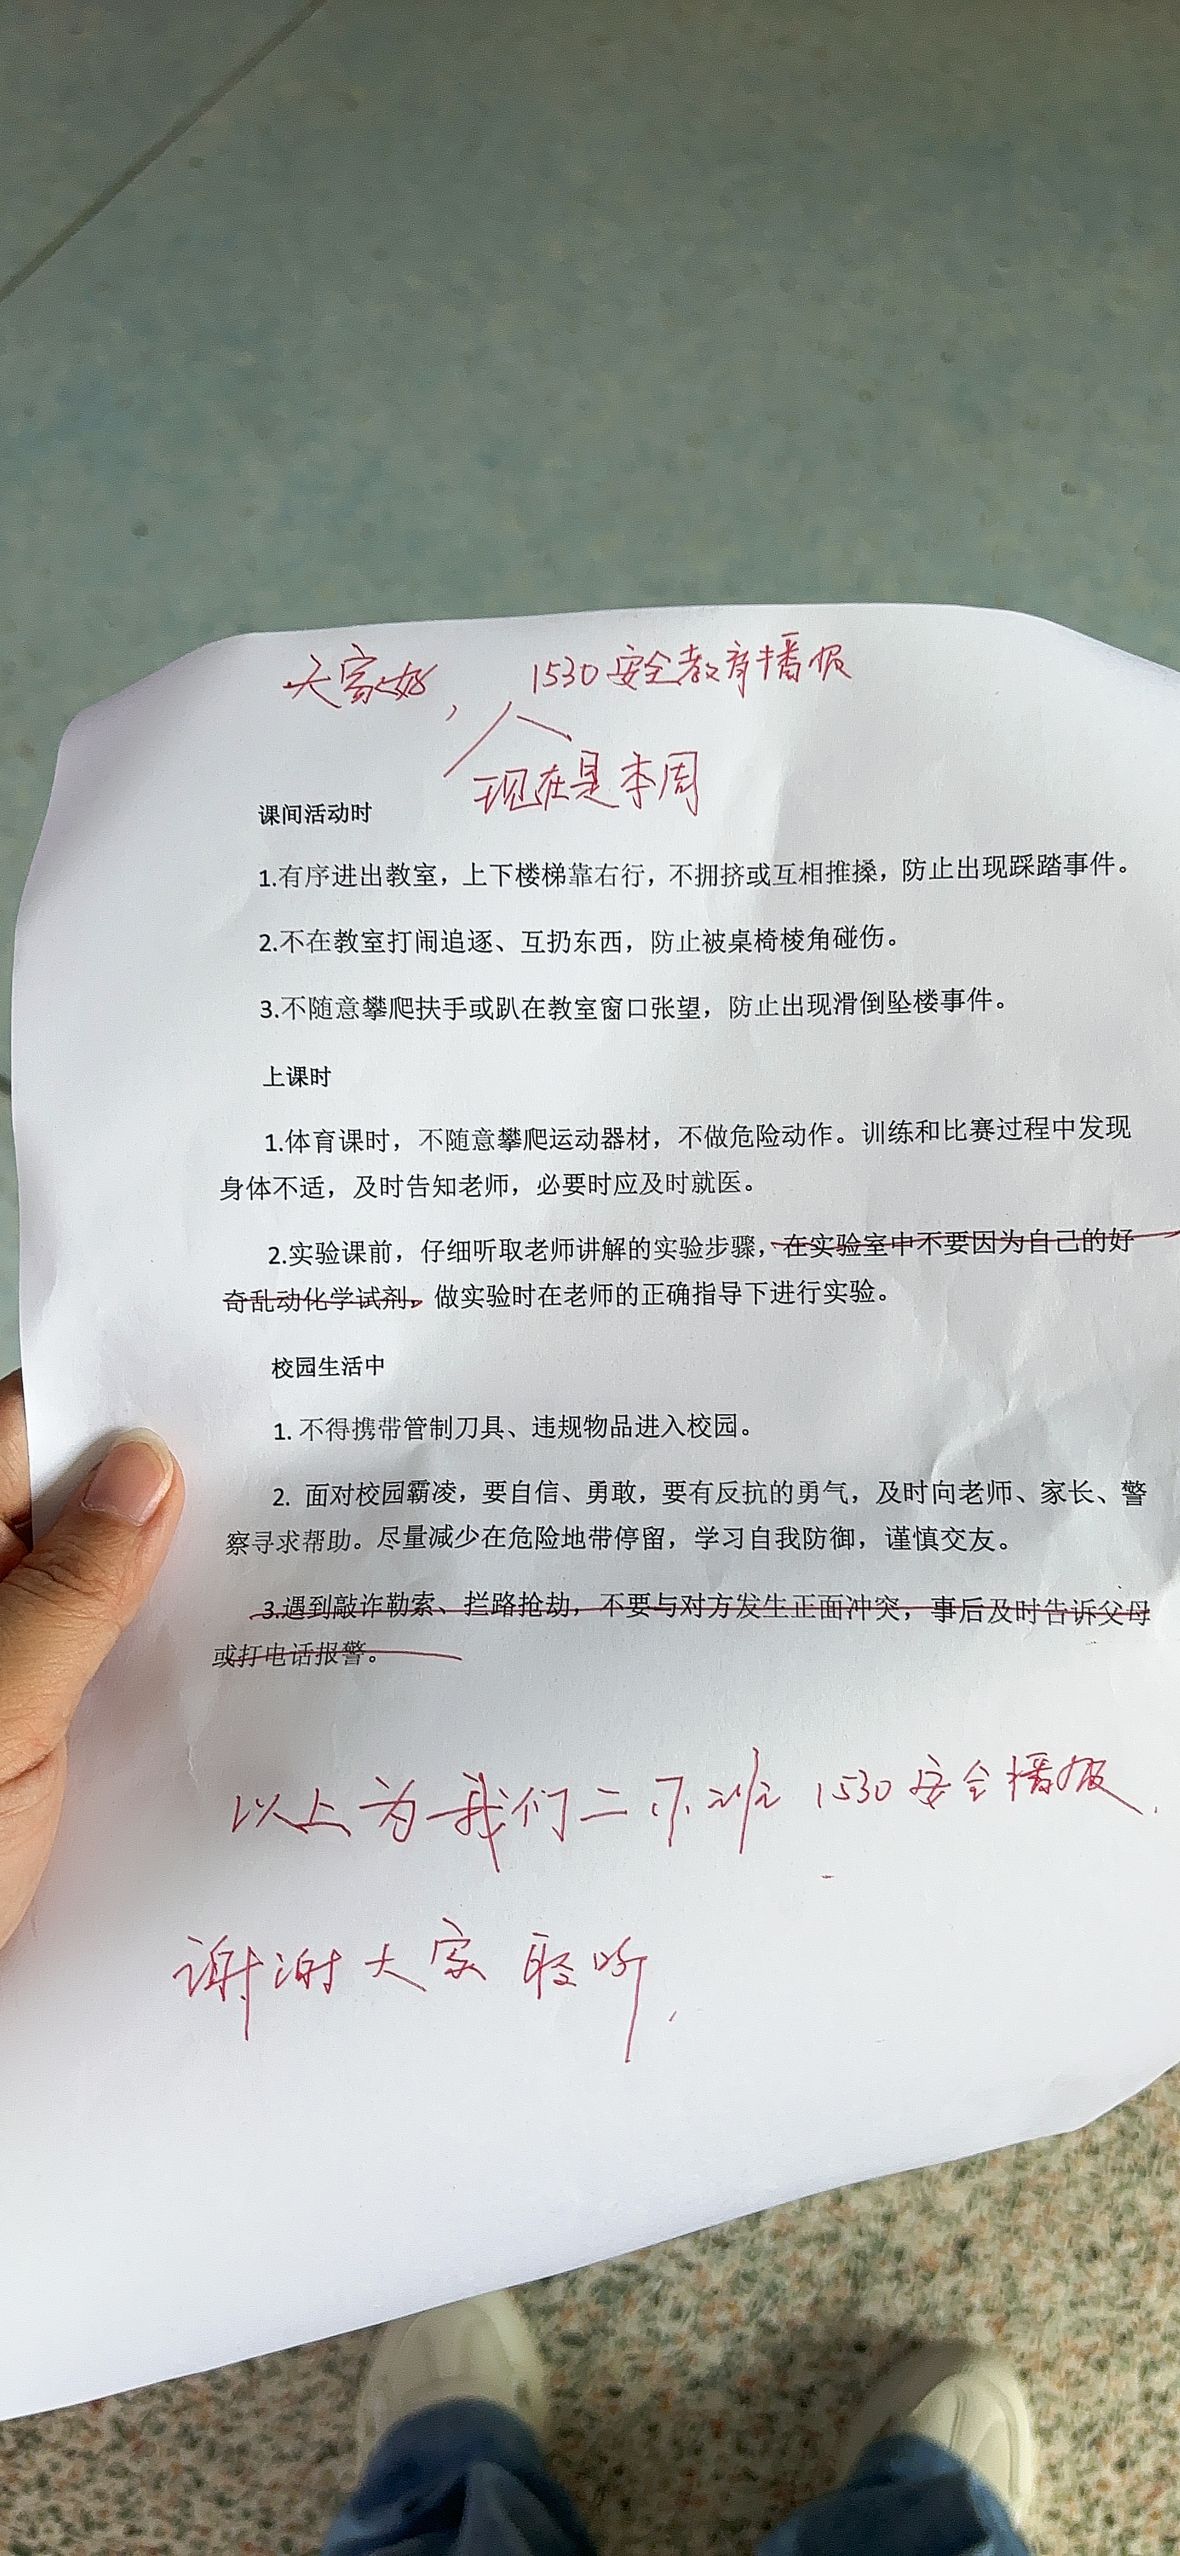 大家好， 1530安全教育播报
现在是本周
课间活动时
1.有序进出教室，上下楼梯靠右行，不拥挤或互相推搡，防止出现踩踏事件。
2.不在教室打闹追逐、互扔东西，防止被桌椅棱角碰伤。
3.不随意攀爬扶手或趴在教室窗口张望，防止出现滑倒坠楼事件。
上课时
1.体育课时，不随意攀爬运动器材，不做危险动作。训练和比赛过程中发现
身体不适，及时告知老师，必要时应及时就医。
2.实验课前，仔细听取老师讲解的实验步骤，在实验室中不要因为自己的好
奇乱动化学试剂，做实验时在老师的正确指导下进行实验。
校园生活中
1. 不得携带管制刀具、违规物品进入校园。
2. 面对校园霸凌，要自信、勇敢，要有反抗的勇气，及时向老师、家长、警
察寻求帮助。尽量减少在危险地带停留，学习自我防御，谨慎交友。
3.遇到敲诈勒索、拦路抢劫，不要与对方发生正面冲突，事后及时告诉父母
或打电话报警。
以上为我们二 班 1530安全播报.
谢谢大家聆听.